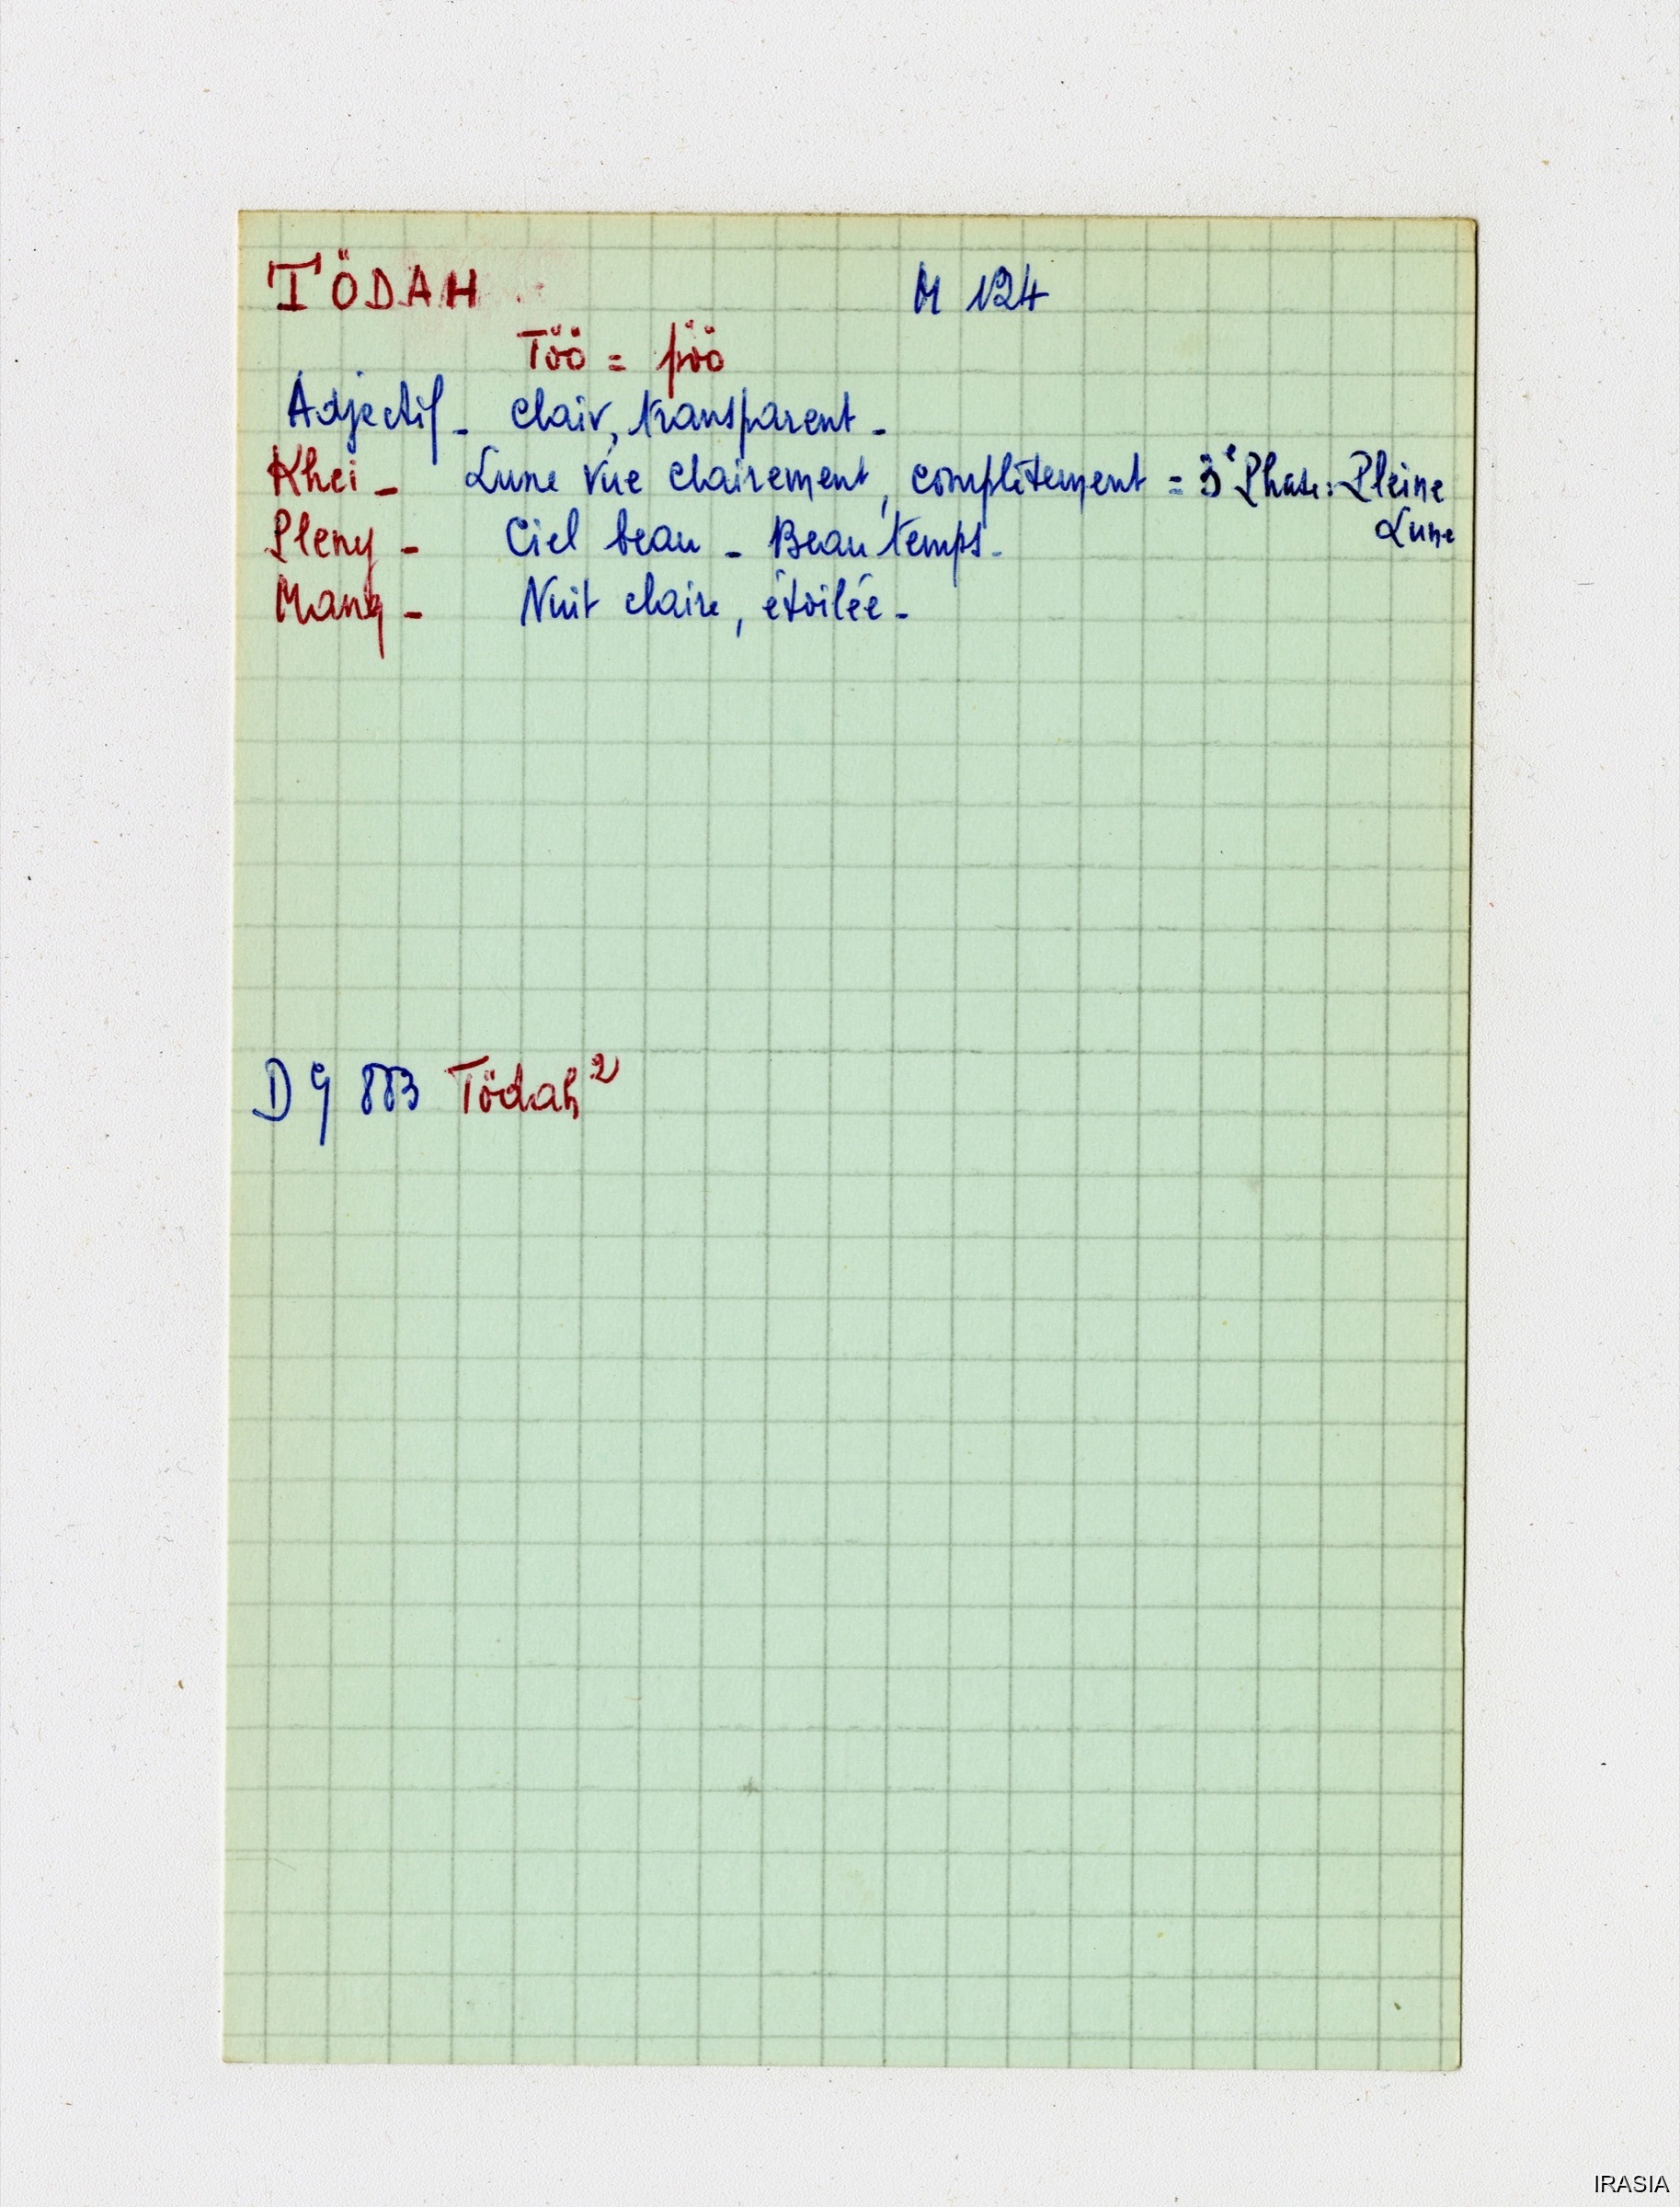 TÖDAH M 124
Töö = pöö
Adjectif - clair, transparent -
Khei - Lune vue clairement, complètement = 3e Phase : Pleine
Lune
Pleny - Ciel beau - Beau temps -
Mang - Nuit claire, étoilée -
D 9 883 Tödah 2
IRASIA